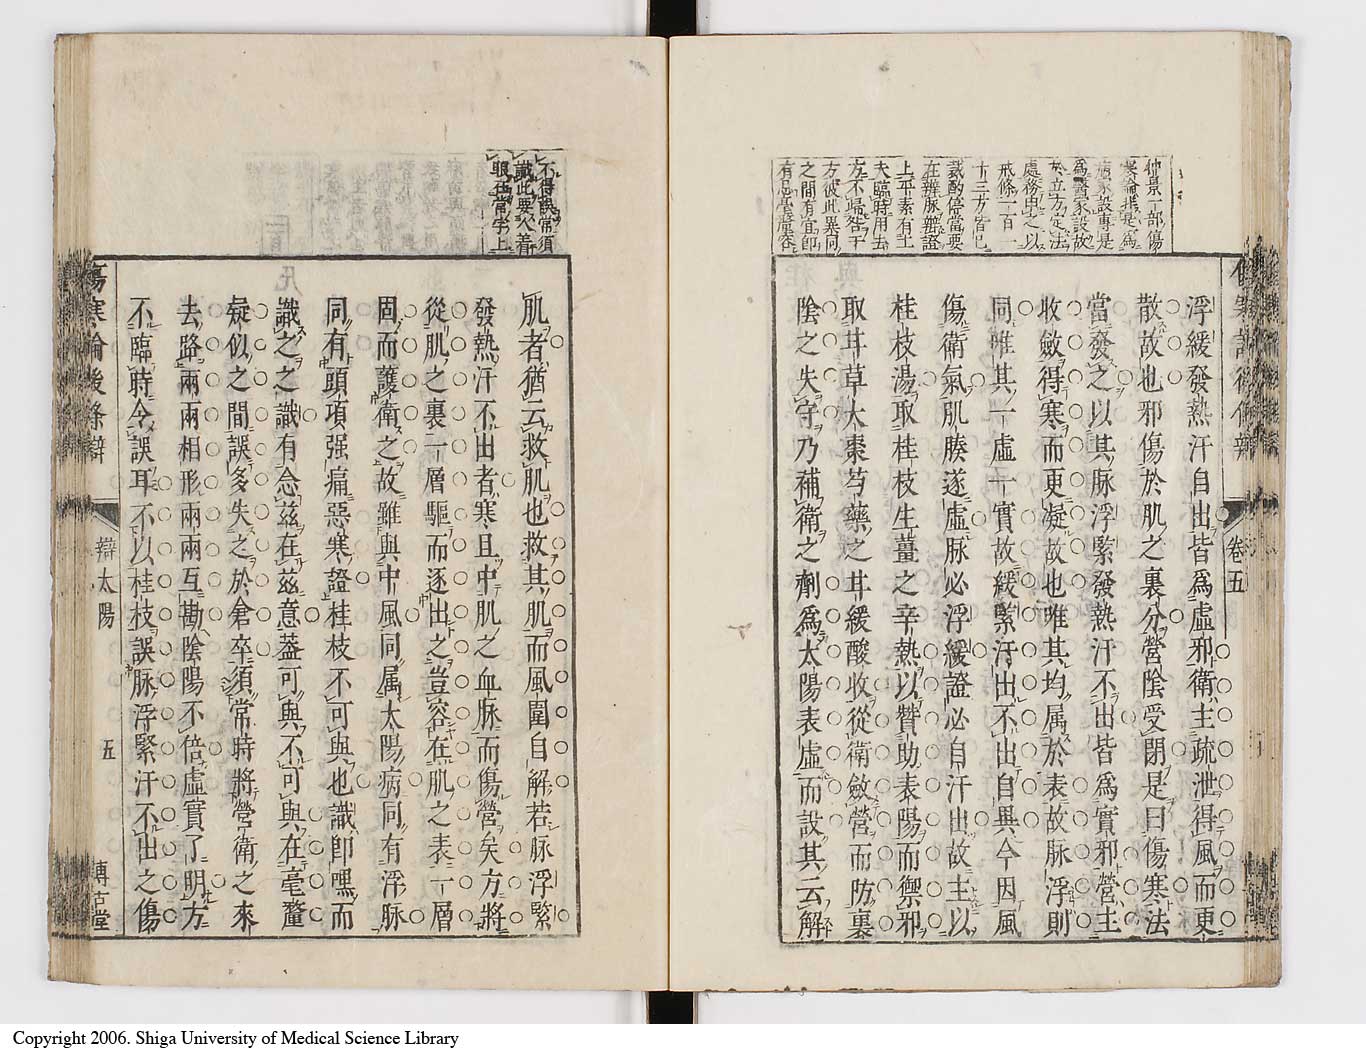 仲景一部傷
寒論指是爲
醫家設故
於立方定法
處務申之以
戒條一百一
十三方皆已
識酌停當要
在辨脉辨證
上平素有土
夫臨時用去
方不歸咎于
方彼此異同
之間有宜卽
浮緩發熱汗自出皆爲虛邪衛主疏泄得風而更
散故也邪傷於肌之裏分營陰受閉是曰傷寒法
當發之以其脉浮緊發熱汗不出皆爲實邪營主
收斂得寒而更凝故也唯其均属於表故脉浮則
同唯其一虛一實故緩緊汗出不出自異今因風
傷衛氣肌腠遂虛脉必浮緩證必自汗出故主以
桂枝湯取桂枝生薑之辛熱以贊助表陽而禦邪
取甘草大棗芍藥之甘緩酸收從衛斂營而防裏
陰之失守乃補衛之劑爲太陽表虛而設其云解
卷五
不得誤常須
識此要入着
眼在常字上
肌者猶云救肌也救其肌而風圍自解若脉浮緊
發熱汗不出者寒且中肌之血脉而傷營矣方將
從肌之裏一層驅而逐出之豈容在肌之表一層
固而護衛之故雖與中風同属太陽病同有浮脉
同有頭項强痛惡寒證桂枝不可與也識卽嘿而
識之之識有念茲在茲意蓋可與不可與在毫釐
疑似之間誤多失之於倉卒須常時將營衛之來
去路兩兩相形兩兩互勘陰陽不倍虛實了明方
不臨時令誤耳不以桂枝誤脉浮緊汗不出之傷
傷寒論後條辯
辯太陽
五
博古堂
Copyright 2006. Shiga University of Medical Science Library